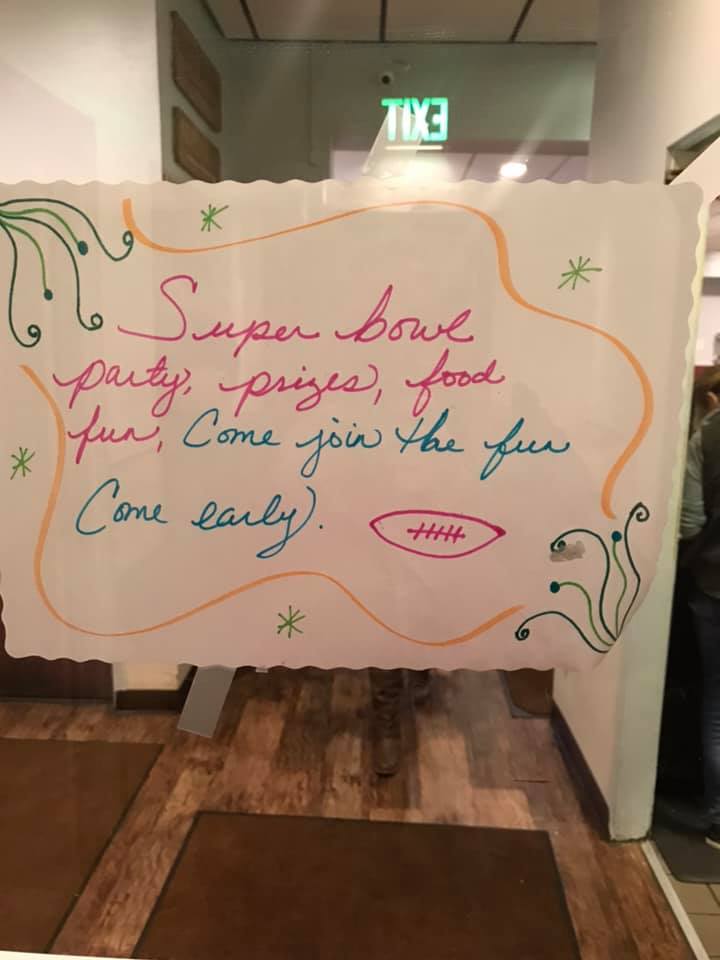 EXIT
Super bowl
party, prizes, food
fun, Come join the fun
Come early.